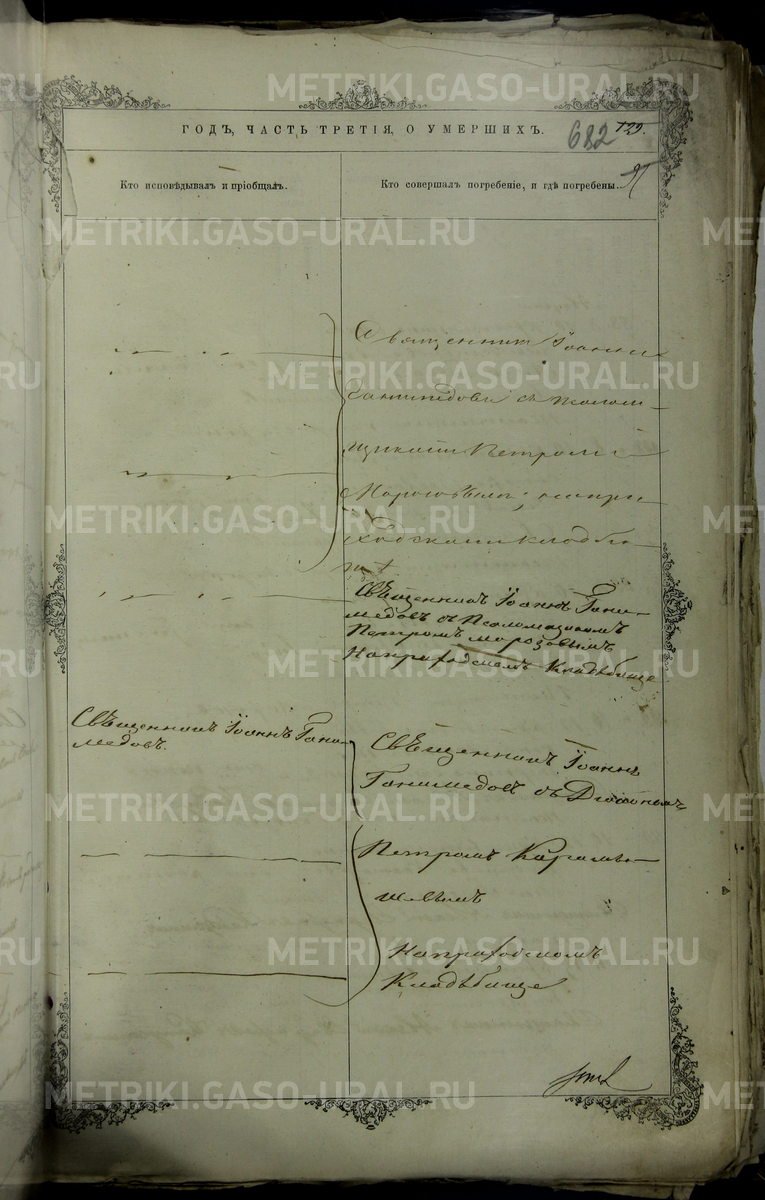 ГОДЪ, ЧАСТЬ ТРЕТІЯ, О УМЕРШИХЪ.
682
129.
Кто исповѣдывалъ и пріобщалъ.
Кто совершалъ погребеніе, и гдѣ погребены.
Священникъ Іоаннъ
Ганимедовъ съ Псалом-
щикомъ Петромъ
Морозовымъ; на при
ходскомъ кладби
щѣ
Свѣщенникъ Іоаннъ Гани-
медовъ съ Псаломщикомъ
Петромъ морозовымъ
Наприходскомъ Кладѣбище
Свѣщенникъ Іоаннъ Гани-
медовъ.
Свѣщенникъ Іоаннъ
Ганимедовъ съ Дьякономъ
Петромъ
Наприходскомъ
Кладѣбище
METRIKI.GASO-URAL.RU